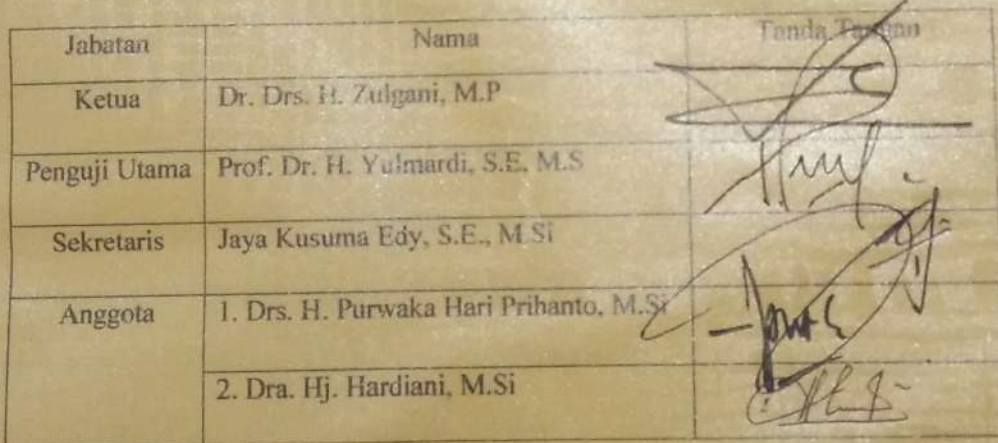 Jabatan Nama Tanda Tangan
Ketua Dr. Drs. H. Zulgani, M.P
Penguji Utama Prof. Dr. H. Yulmardi, S.E, M.S
Sekretaris Jaya Kusuma Edy, S.E., M.Si
Anggota 1. Drs. H. Purwaka Hari Prihanto, M.Si
2. Dra. Hj. Hardiani, M.Si